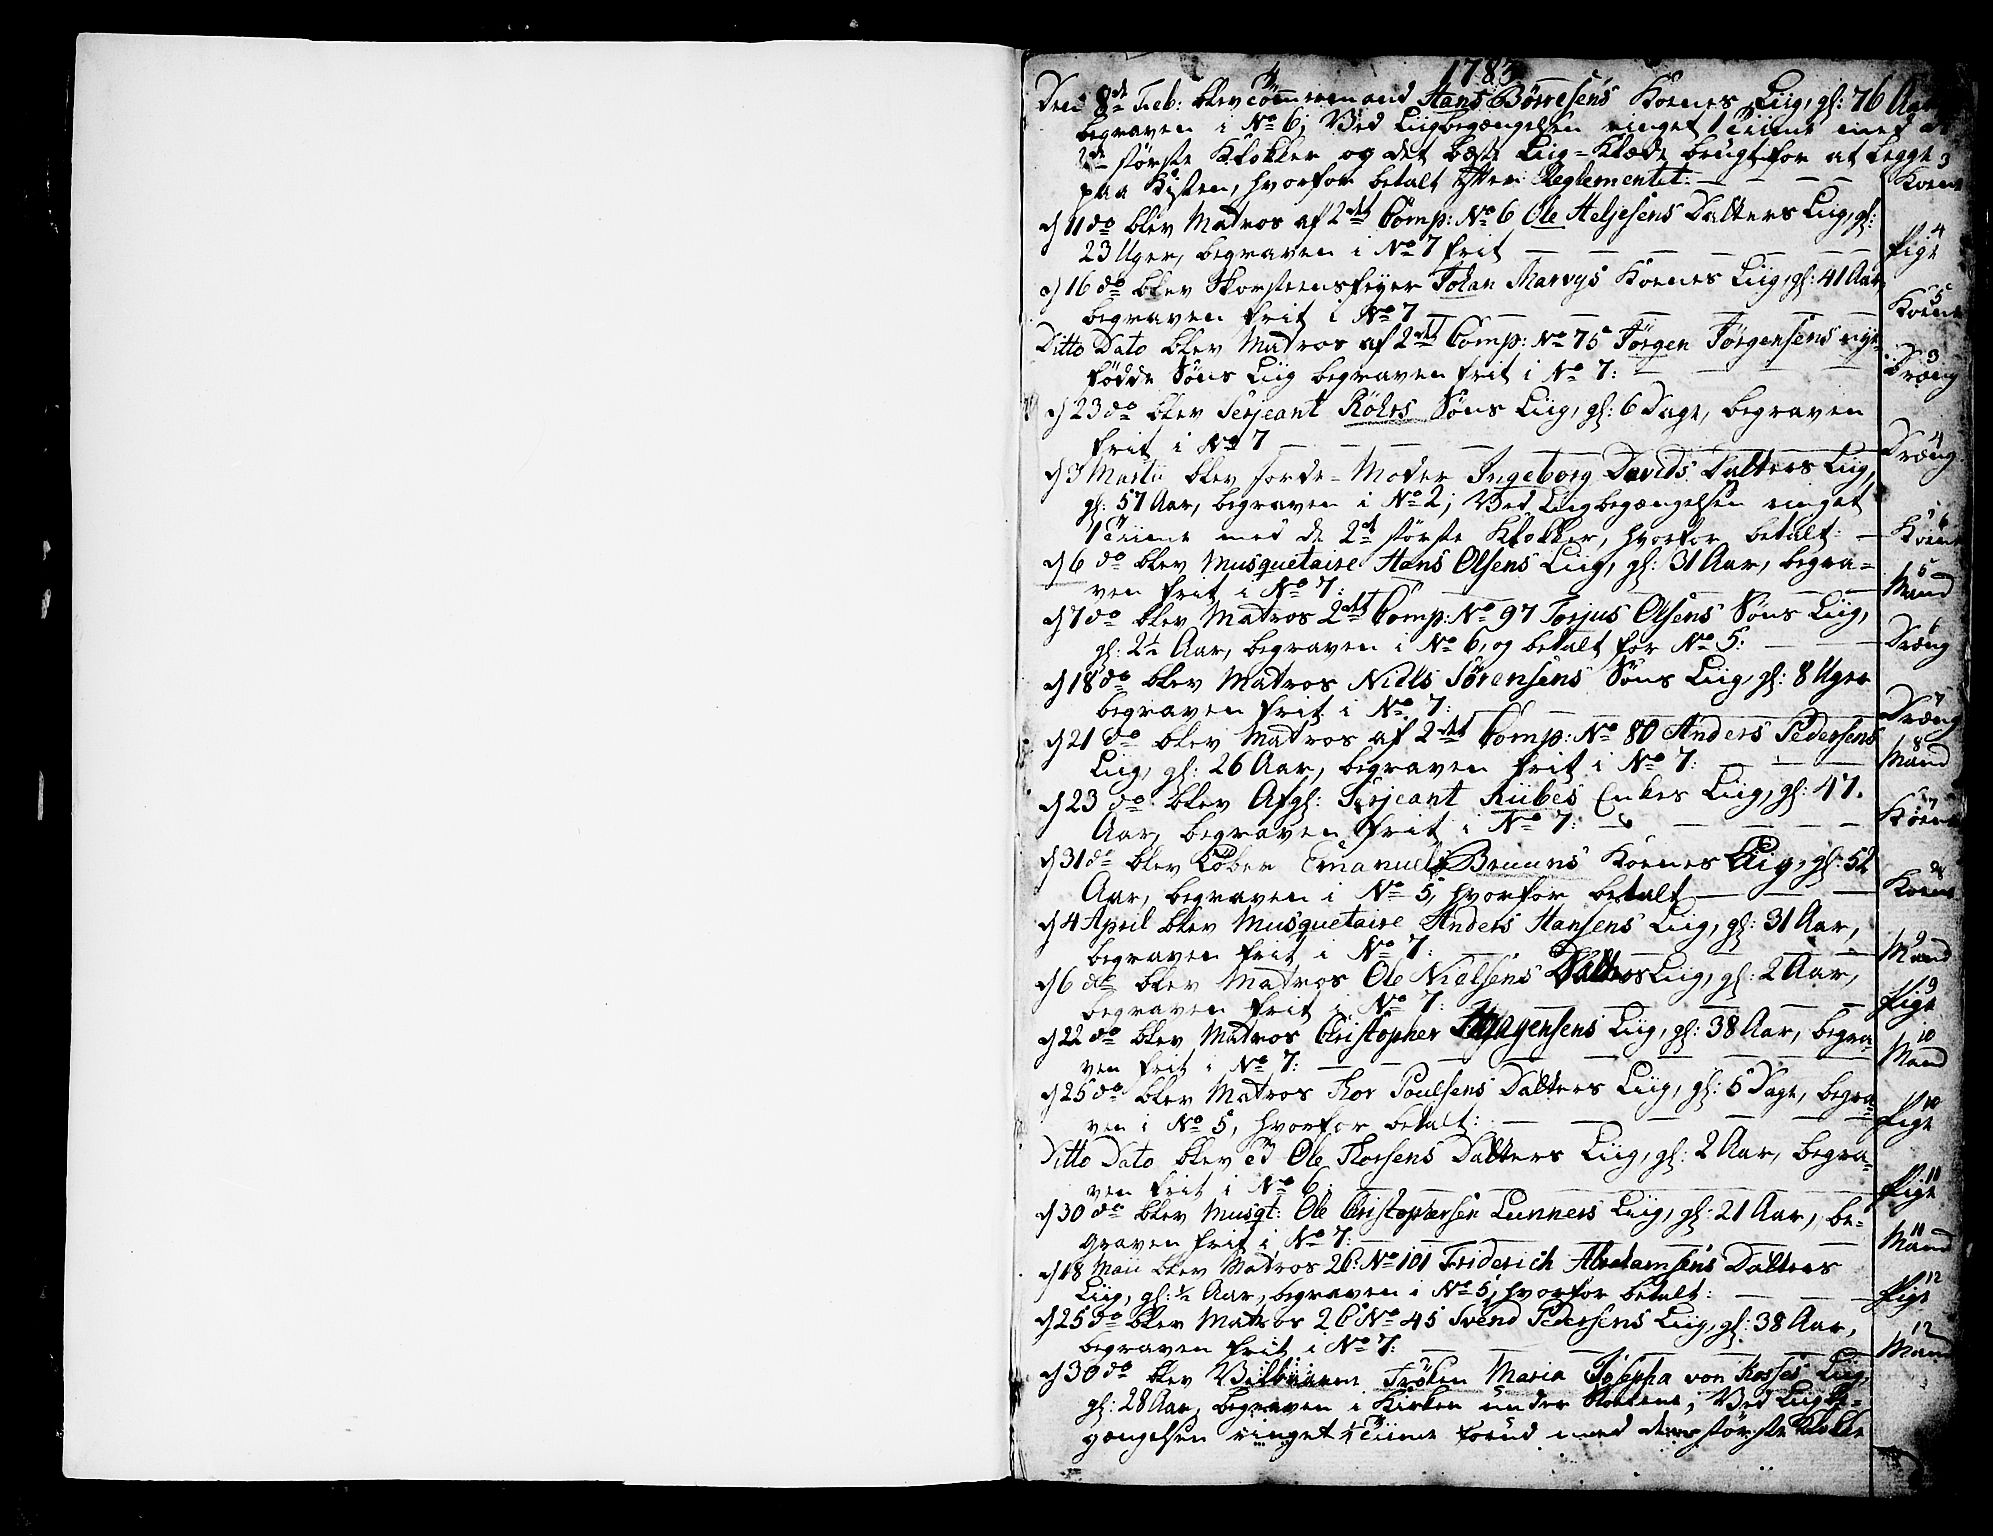 1783
Den 8de Feb: blev Tömmermand Hans Börresens Kones Liig, gl: 76 Aar
begraven i No 6; Ved Liigbegængelsen ringet 1 Tiime med de
2de störste Klokker og det beste Liig=Klæde brugt for at legge 3
paa Kisten, hvorfor betalt efter Reglementet: Kone
d 11 do blev Matros af 2det Comp: No 6 Ole Heljesens Datters Liig, gl: 4
23 Uger, begraven i No 7 frit Pige
d 16 do blev Skorsteensfeyer Johan Marvys Kones Liig, gl: 41 Aar, 5
begraven frit i No 7 Kone
Ditto Dato blev Matros af 2det Comp: No 75 Jörgen Jörgensens nye= 3
födde Söns Liig begraven frit i No 7: Dræng
d 23 do blev Serjeant Röhrs Söns Liig, gl: 6 Dage, begraven 4
frit i No 7 Dræng
d 3 Martii blev Jorde=Moder Ingeborg Davids Datters Liig,
gl: 57 Aar, begraven i No 2; Ved Liigbegængelsen ringet 6
1 Tiime med de 2de störste Klokker, hvorfor betalt: Kone
d 6 do blev Musquetaire Hans Olsens Liig, gl: 31 Aar, begra= 5
ven frit i No 7: Mand
d 7 do blev Matros 2det Comp: No 97 Torjus Olsens Söns Liig, 6
gl: 2½ Aar, begraven i No 6, og betalt for No 5: Dræng
d 18 do blev Matros Niels Sörensens Söns Liig, gl: 8 Uger 7
begraven frit i No 7: Dræng
d 21 do blev Matros af 2det Comp: No 80 Anders Pedersens 8
Liig, gl: 26 Aar, begraven frit i No 7: Mand
d 23 do blev Afgl: Serjeant Rübes Enkes Liig, gl: 47. 7
Aar, begraven frit i No 7: Kone
d 31 do blev Töber Emanuel Bruuns Kones Liig, gl: 52 8
Aar, begraven i No 5, hvorfor betalt Kone
d 4 April blev Musquetaire Anders Hansens Liig, gl: 31 Aar, 9
begraven frit i No 7: Mand
d 6 do blev Matros Ole Nielsens Datters Liig, gl: 2 Aar, 9
begraven frit i No 7: Pige
d 22 do blev Matros Christopher Hagensens Liig, gl: 38 Aar, begra= 10
ven frit i No 7: Mand
d 25 do blev Matros Thor Poulsens Datters Liig, gl: 5 Dage, begra= 10
ven i No 5, hvorfor betalt: Pige
Ditto Dato blev Ole Thorsens Datters Liig, gl: 2 Aar, begra= 11
ven frit i No 6: Pige
d 30 do blev Musqt: Ole Christophersen Lunners Liig, gl: 21 Aar, be= 11
graven frit i No 7: Mand
d 18 Maii blev Matros 2C: No 101 Friderich Abrahamsens Datters 12
Liig, gl: ½ Aar, begraven i No 5, hvorfor betalt: Pige
d 25 do blev Matros 2C No 45 Svend Pedersens Liig, gl: 38 Aar, 12
begraven frit i No 7: Mand
d 30 do blev Velbaarne Fröken Maria Josepha von Kosses Liig,
gl: 28 Aar, begraven i Kirken under Stolene; Ved Liigbe=
gængelsen ringet ½ Tiime forud med den störste Klokke